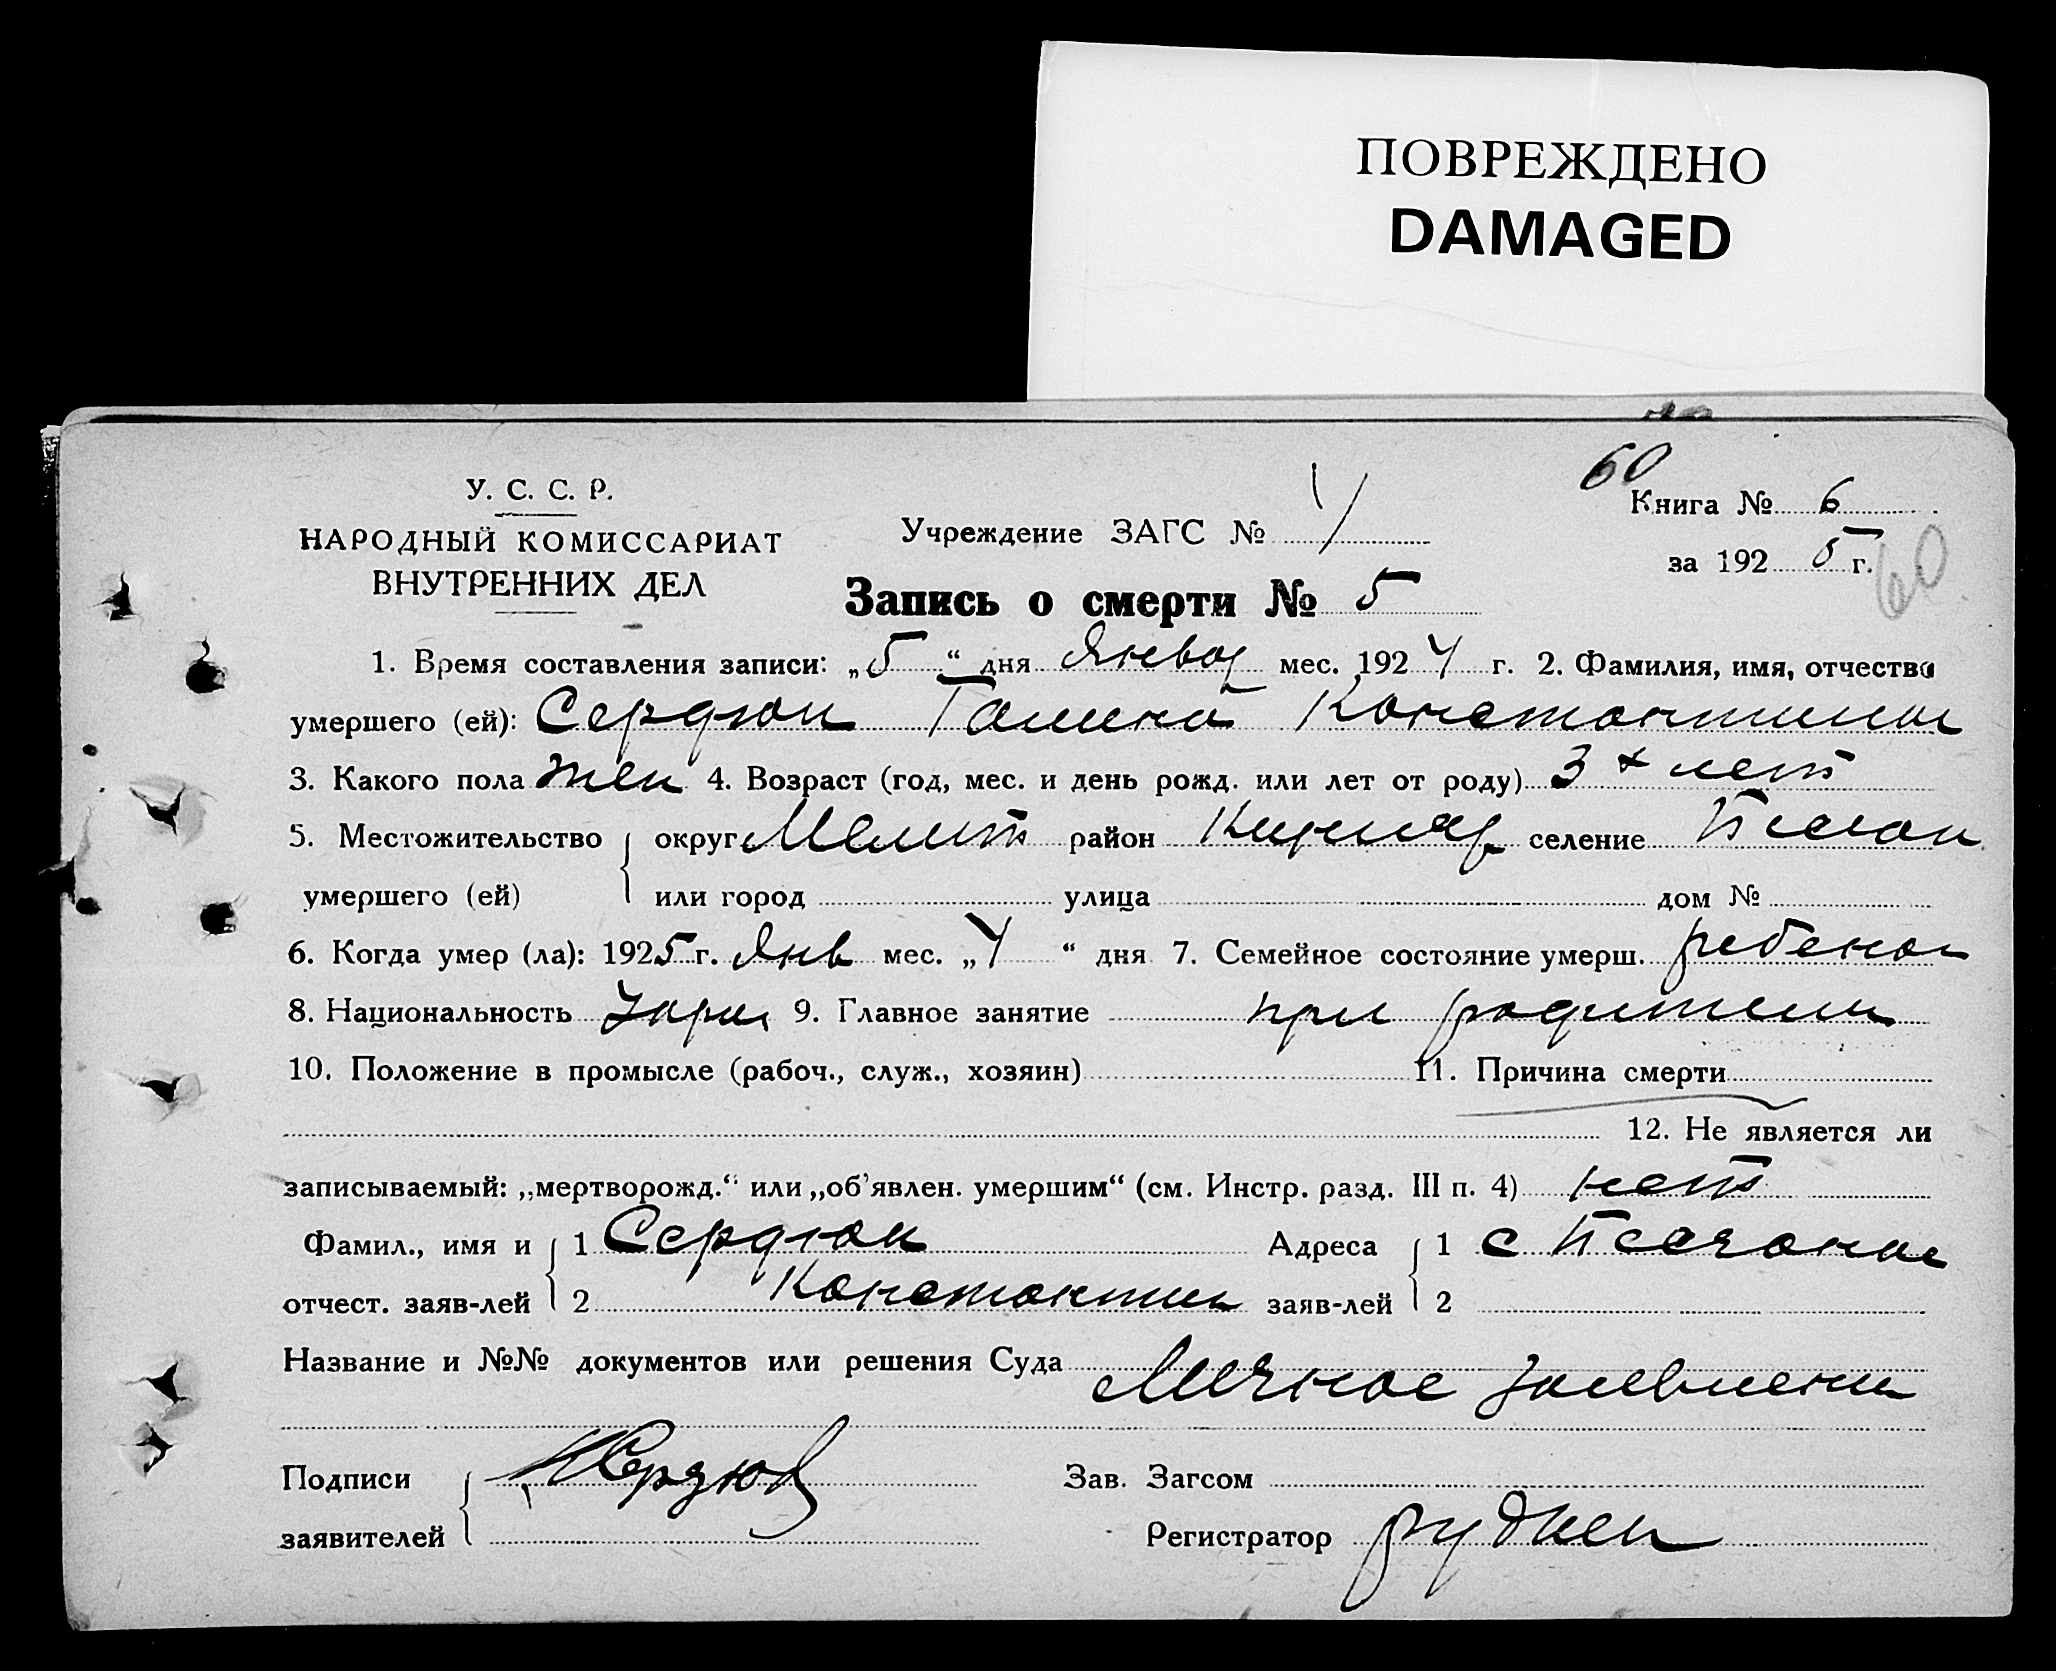 ПОВРЕЖДЕНО
DAMAGED
60
У. С. С. Р.
НАРОДНЫЙ КОМИССАРИАТ
ВНУТРЕННИХ ДЕЛ
Учреждение ЗАГС №
Книга № 6
за 192 5 г.
60
Запись о смерти № 5
1. Время составления записи: „5“ дня мес. 192 4 г. 2. Фамилия, имя, отчество
умершего (ей): Сердюк Галина
3. Какого пола жен 4. Возраст (год, мес. и день рожд. или лет от роду) 3 х лет
5. Местожительство округ Мелит район селение
умершего (ей) или город улица дом №
6. Когда умер (ла): 1925 г. Янв мес. „4“ дня 7. Семейное состояние умерш. ребенок
8. Национальность 9. Главное занятие при
10. Положение в промысле (рабоч., служ., хозяин) 11. Причина смерти
12. Не является ли
записываемый: „мертворожд.“ или „об'явлен. умершим“ (см. Инстр. разд. III п. 4) нет
Фамил., имя и 1 Сердюк Адреса 1 с
отчест. заяв-лей 2 Константин заяв-лей 2
Название и №№ документов или решения Суда Личное
Подписи Зав. Загсом
заявителей Регистратор